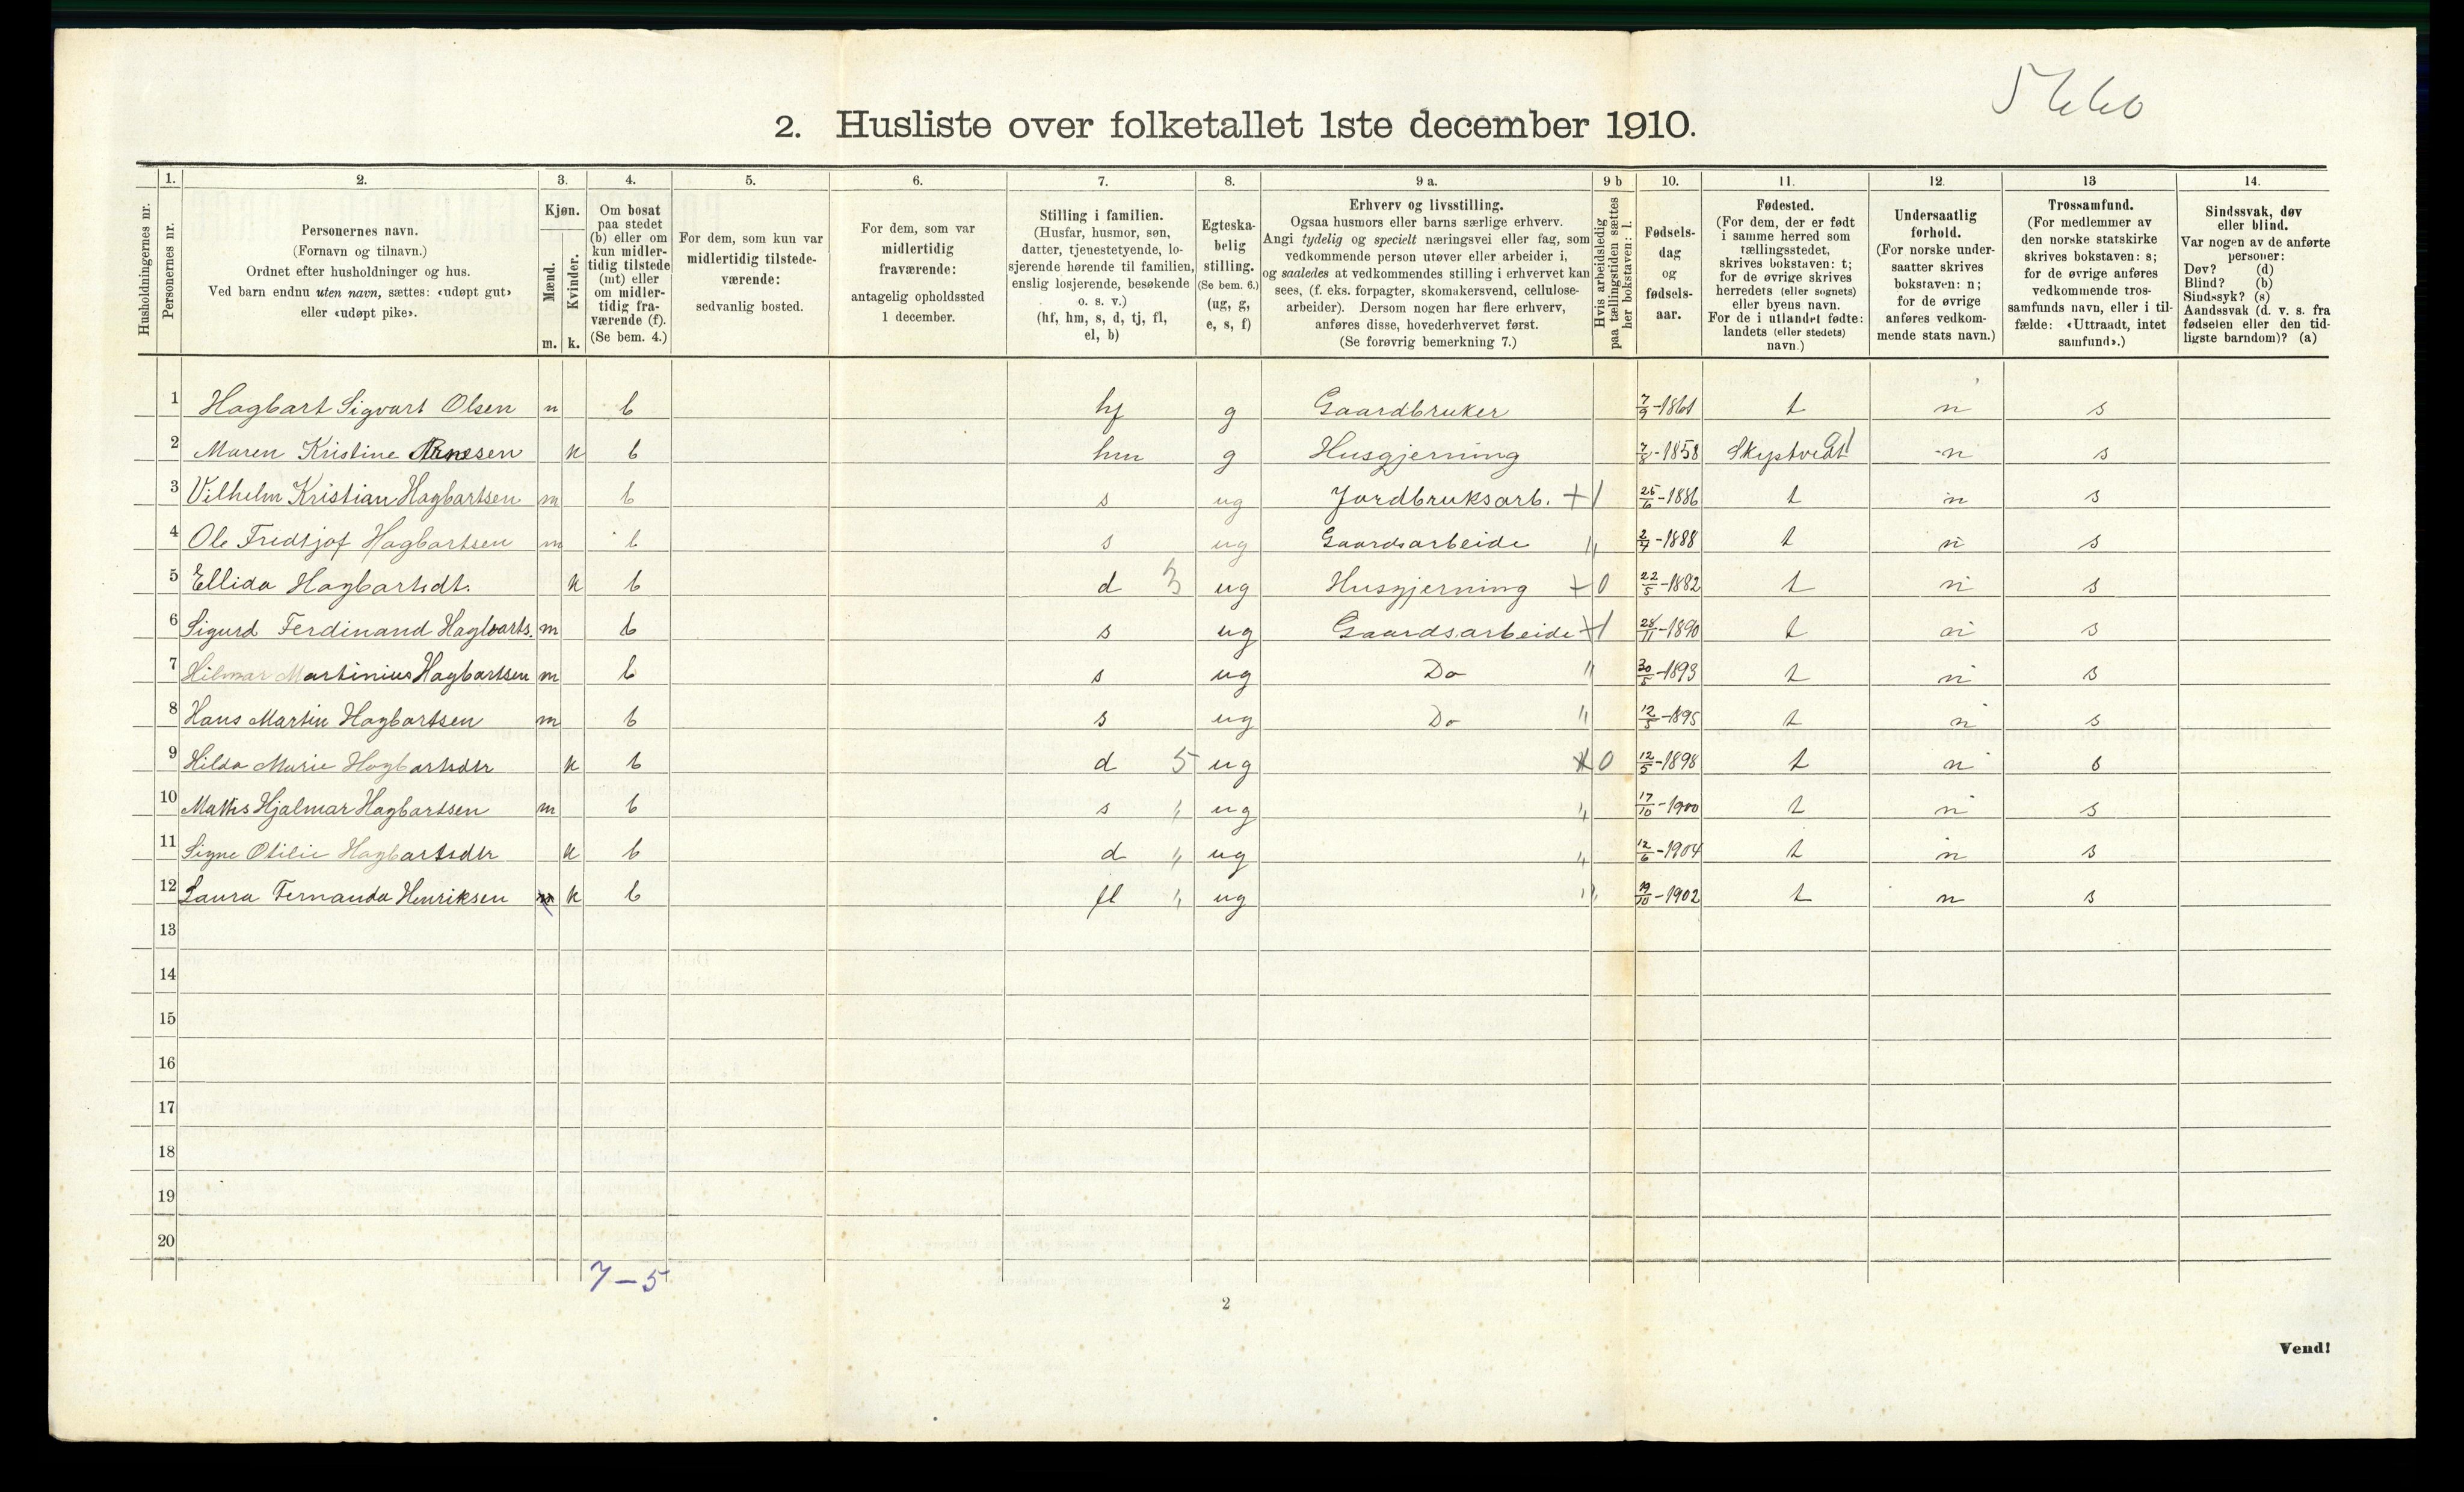 5660
2. Husliste over folketallet 1ste december 1910.
Husholdningernes nr.
1. Personernes nr.
2. Personernes navn.
(Fornavn og tilnavn.)
Ordnet efter husholdninger og hus.
Ved barn endnu uten navn, sættes: «udøpt gut»
eller «udøpt pike».
3. Kjøn.
Mænd. m.
Kvinder. k.
4. Om bosat
paa stedet
(b) eller om
kun midler-
tidig tilstede
(mt) eller
om midler-
tidig fra-
værende (f).
(Se bem. 4.)
5. For dem, som kun var
midlertidig tilstede-
værende:
sedvanlig bosted.
6. For dem, som var
midlertidig
fraværende:
antagelig opholdssted
1 december.
7. Stilling i familien.
(Husfar, husmor, søn,
datter, tjenestetyende, lo-
sjerende hørende til familien,
enslig losjerende, besøkende
o. s. v.)
(hf, hm, s, d, tj, fl,
el, b)
8. Egteska-
belig
stilling.
(Se bem. 6.)
(ug, g,
e, s, f)
9 a. Erhverv og livsstilling.
Ogsaa husmors eller barns særlige erhverv.
Angi tydelig og specielt næringsvei eller fag, som
vedkommende person utøver eller arbeider i,
og saaledes at vedkommendes stilling i erhvervet kan
sees, (f. eks. forpagter, skomakersvend, cellulose-
arbeider). Dersom nogen har flere erhverv,
anføres disse, hovederhvervet først.
(Se forøvrig bemerkning 7.)
9 b Hvis arbeidsledig
paa tællingstiden sættes
her bokstaven: l.
10. Fødsels-
dag
og
fødsels-
aar.
11. Fødested.
(For dem, der er født
i samme herred som
tællingsstedet,
skrives bokstaven: t;
for de øvrige skrives
herredets (eller sognets)
eller byens navn.
For de i utlandet fødte:
landets (eller stedets)
navn.)
12. Undersaatlig
forhold.
(For norske under-
saatter skrives
bokstaven: n;
for de øvrige
anføres vedkom-
mende stats navn.)
13 Trossamfund.
(For medlemmer av
den norske statskirke
skrives bokstaven: s;
for de øvrige anføres
vedkommende tros-
samfunds navn, eller i til-
fælde: «Uttraadt, intet
samfund».)
14. Sindssvak, døv
eller blind.
Var nogen av de anførte
personer:
Døv? (d)
Blind? (b)
Sindssyk? (s)
Aandssvak (d. v. s. fra
fødselen eller den tid-
ligste barndom)? (a)
1 Hagbart Sigvart Olsen m b hf g Gaardbruker 7/9-1861 t n s
2 Maren Kristine Arnesen k b hm g Husgjerning 7/8-1858 Skiptvedt n s
3 Vilhelm Kristian Hagbartsen m b s ug Jordbruksarb. +1 25/6-1886 t n s
4 Ole Fredtjof Hagbartsen m b s ug Gaardsarbeide " 2/4-1888 t n s
5 Ellida Hagbartsdt. k b d 3 ug Husgjerning +0 22/5-1882 t n s
6 Sigurd Ferdinand Hagbarts. m b s ug Gaardsarbeide +1 28/11-1890 t n s
7 Hilmar Martinius Hagbartsen m b s ug Do " 30/5-1893 t n s
8 Hans Martin Hagbartsen m b s ug Do " 12/5-1895 t n s
9 Hilda Marie Hagbartsdtr k b d 5 ug 0 12/5-1898 t n s
10 Mathis Hjalmar Hagbartsen m b s " ug " 17/10-1900 t n s
11 Signe Otilie Hagbartsdtr k b d " ug " 12/6-1904 t n s
12 Laura Fernanda Henriksen k b fl " ug " 19/10-1902 t n s
13
14
15
16
17
18
19
20
7-5
2
Vend!